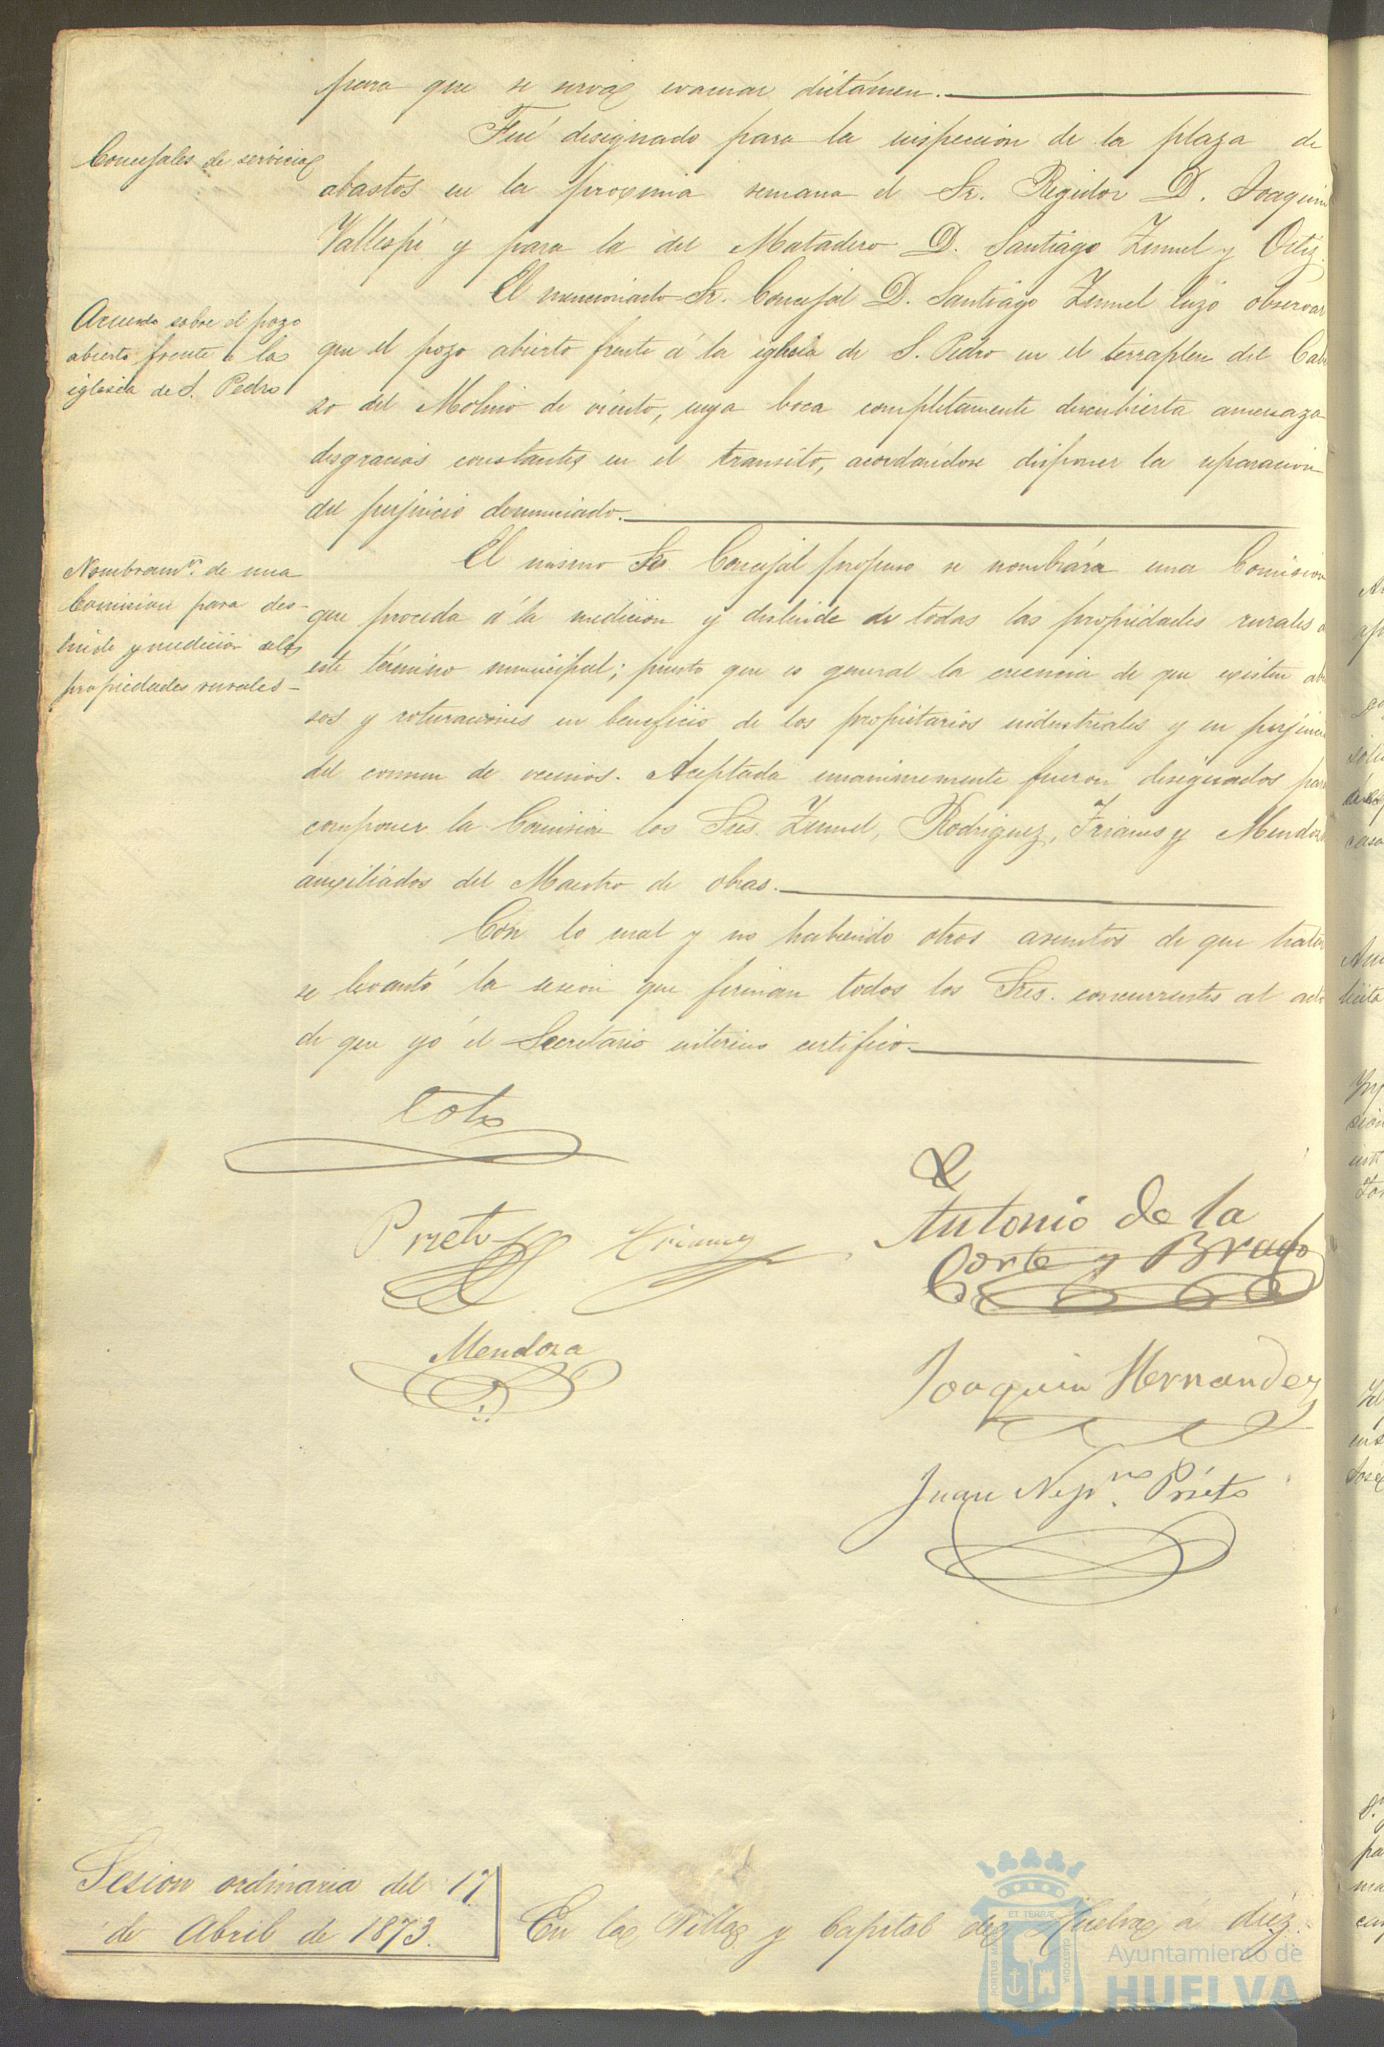 para que se sirva evacuar dictámen.
Concejales de servicio
Fué designado para la inspeccion de la plaza de
abastos en la procsima semana el Sr. Regidor D. Joaquin
Vallespi y para la del Matadero D. Santiago Zunel y Ortiz.
Acuerdo sobre el pozo
abierto frente á la
iglesia de S. Pedro
El mencionado Sr. Concejal D. Santiago Zunel hizo observar
que el pozo abierto frente á la iglesia de S. Pedro en el terraplen del Cabe
zo del Molino de viento, cuya boca completamente descubierta amenaza
desgracias constantes en el transito, acordándose disponer la reparacion
del perjuicio denunciado.
Nombramto. de una
Comision para des-
linde y medicion de las
propiedades rurales-
El mismo Sr. Concejal propuso se nombrára una Comision
que proceda á la medicion y deslinde de todas las propiedades rurales
este término municipal; puesto que es general la creencia de que existen abu
sos y roturaciones en beneficio de los propietarios industriales y en perjuicio
del comun de vecinos. Aceptada unanimemente fueron designados para
componer la Comision los Sres. Zunel, Rodriguez, Trianes y Mendoza
auxiliados del Maestro de obras.
Con lo cual y no habiendo otros asuntos de que tratar
se levantó la sesion que firman todos los Sres. concurrentes al acto
de que yó el Secretario interino certifico.
Coto
Prieto Trianes
Antonio de la
Corte y Bravo
Mendoza
Joaquin Hernandez
Juan Nepno. Prieto
Sesion ordinaria del 17
de Abril de 1873.
En la Villa y Capital de Huelva á diez
Ayuntamiento de
HUELVA